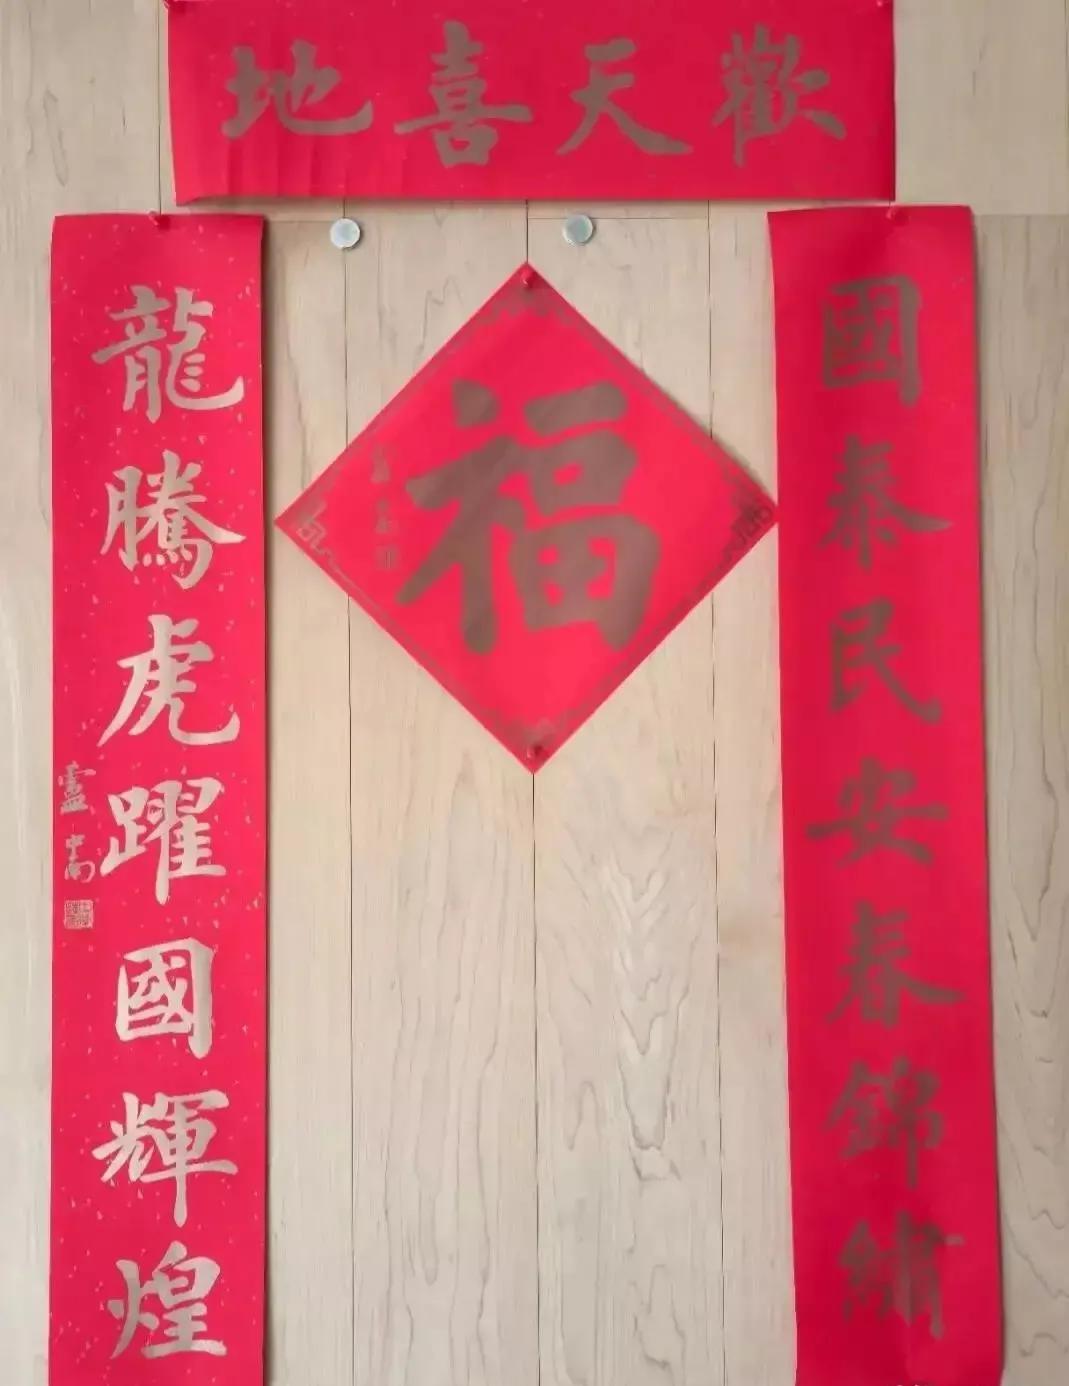 歡天喜地
國泰民安春錦繡
龍騰虎躍國輝煌
福
盧中南